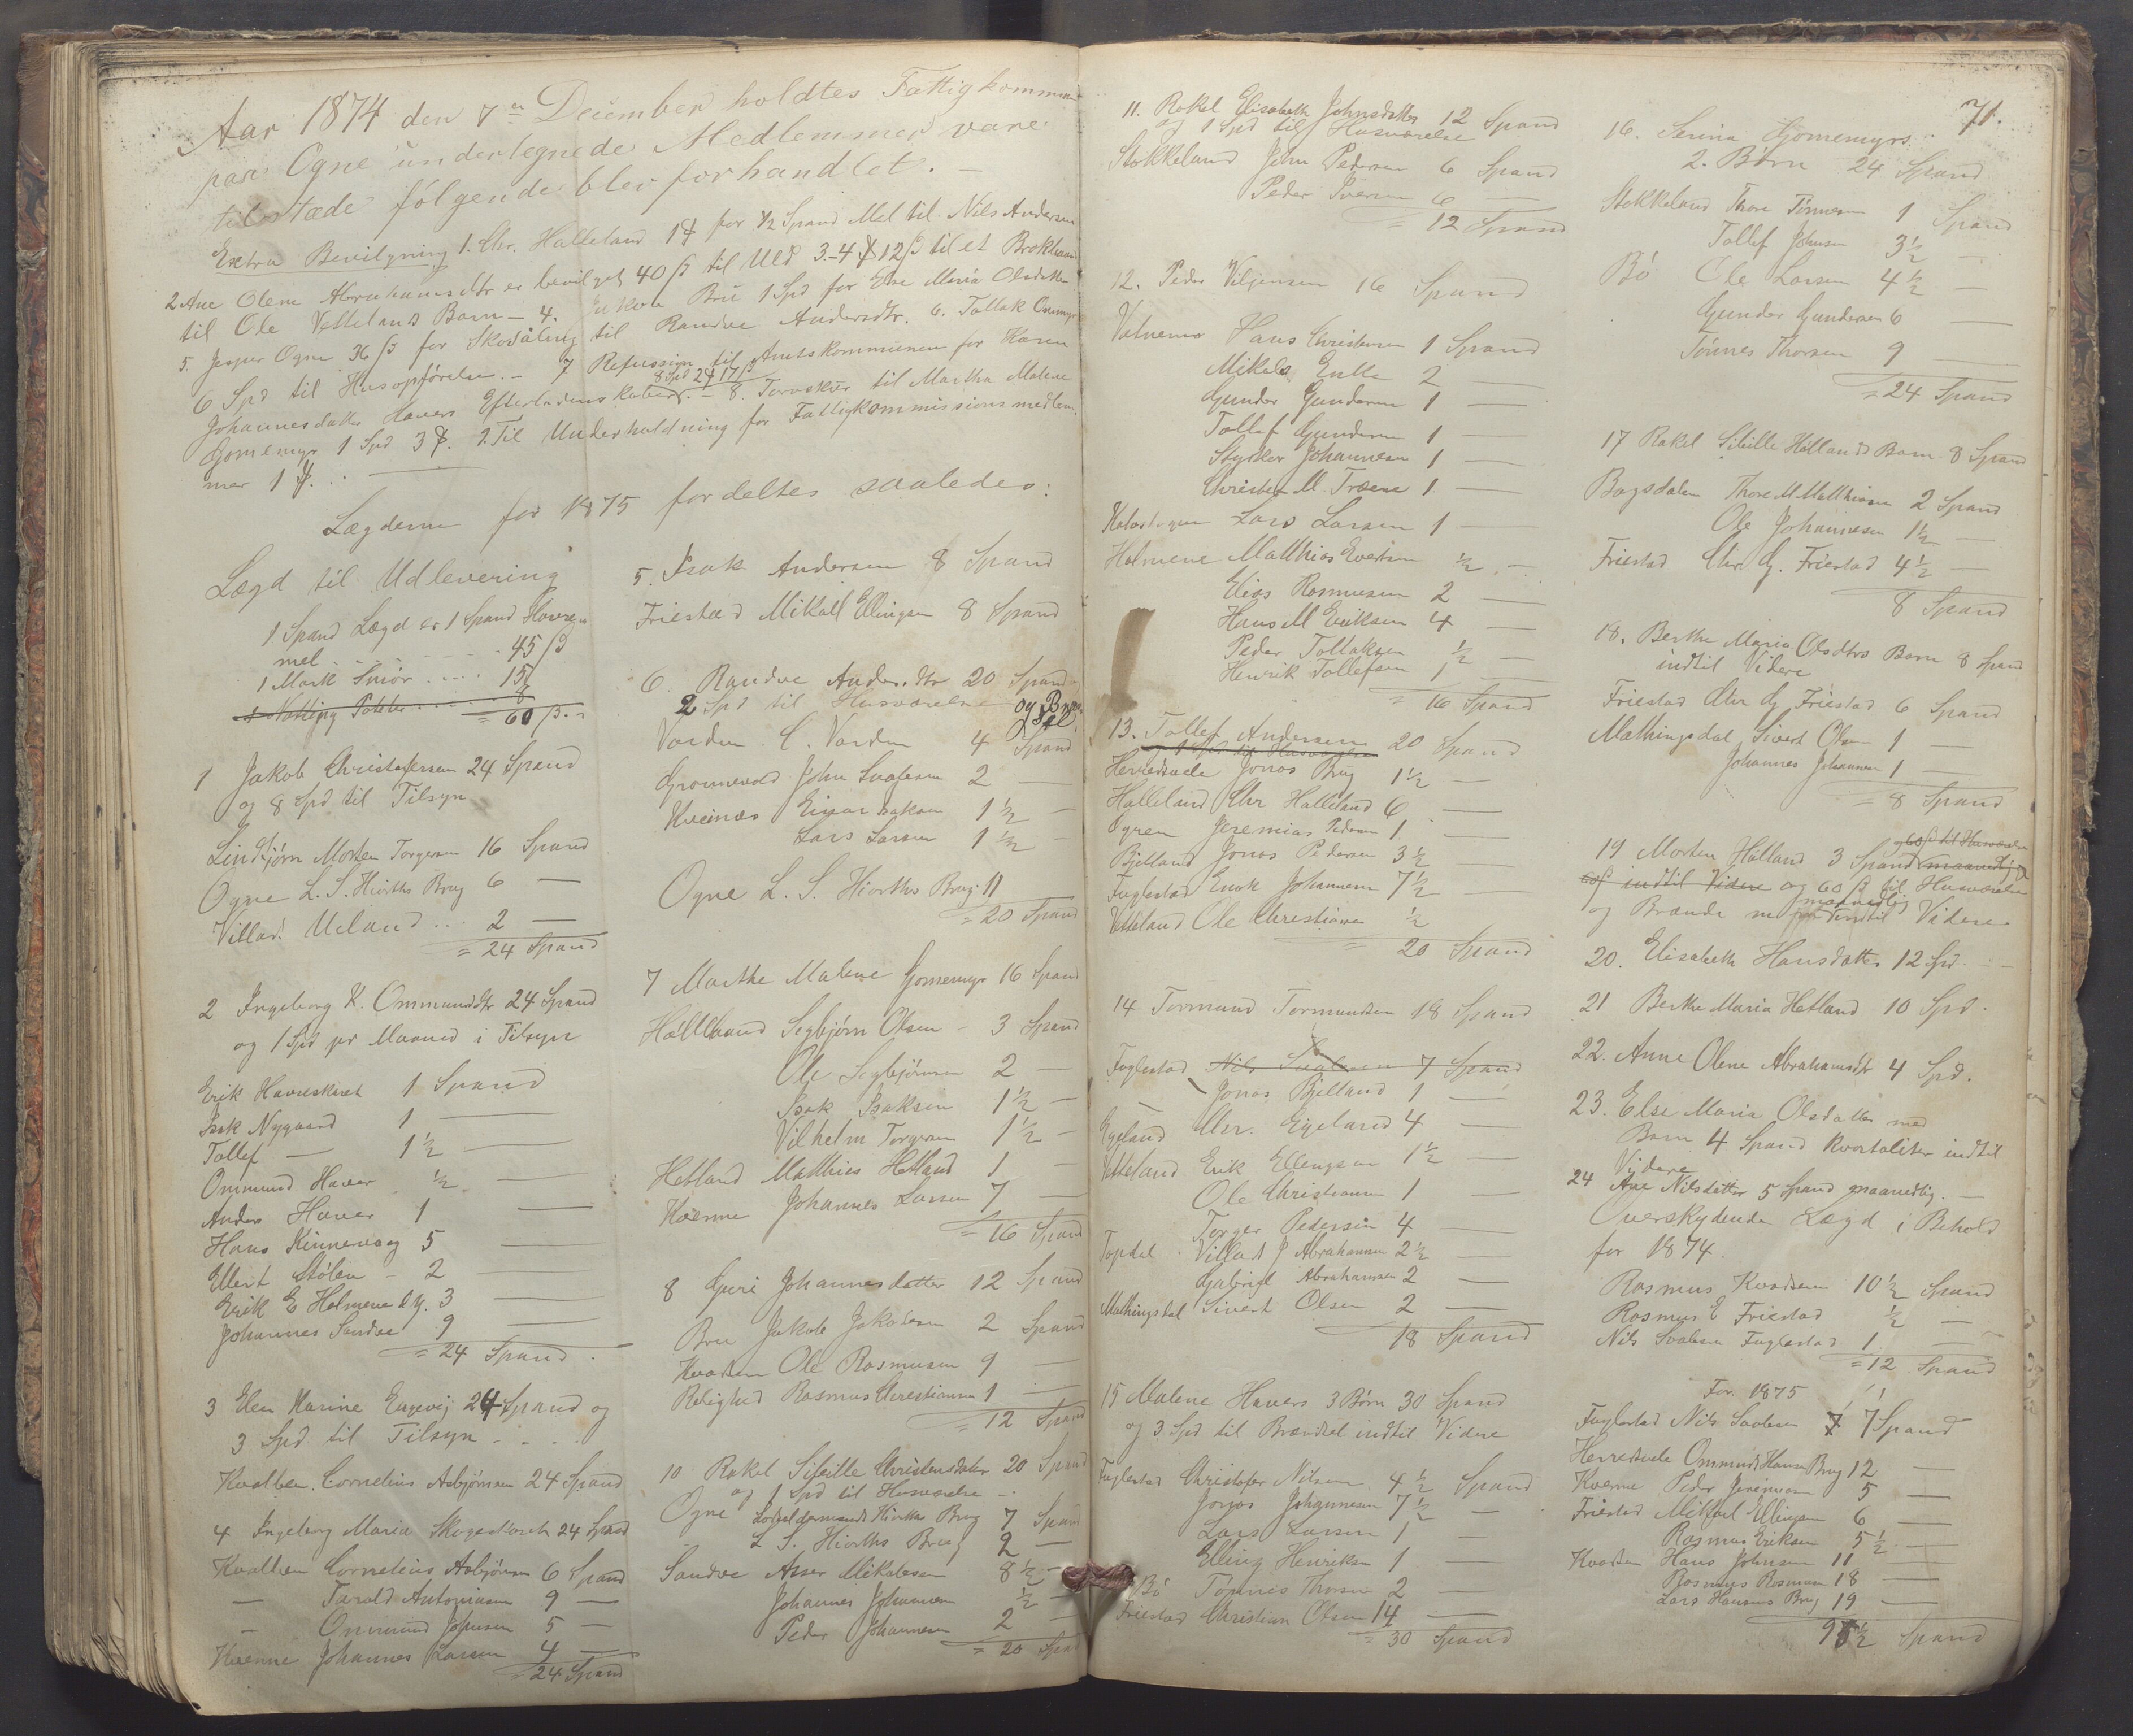 Aar 1874 den 7de December holdtes Fattigkommis
paa Ogne undertegnede Medlemmer vare
tilstæde følgende blev forhandlet. —
Extra Bevilgning 1. Chr. Halleland 1 for ½ Spand Mel til Nils Andersen
2 Ane Olene Abrahamsdtr er bevilget 40 ß til Uld 3.-4 12 ß til et Brokbaand
til Ole Vetteland Barn — 4. Jakob Bru 1 Spd for Else Maria Olsdatter
5. Jesper Ogne 36 ß for Skosåling til Randve Andersdtr. 6. Tollak
6 Spd til Husopførelse. — 7 Refussion til Amtskommunen for Karen
8 Spd 2 17 ß
Johannesdatter Havers Efterladenskaber. — 8. Torvskur til Martha Malene
Gomemyr 1 Spd 3. 9. Til Underholdning for Fattigkommissionsmedlem
mer 1
Lægderne for 1875 fordeltes saaledes:
Lægd til Udlevering
1 Spand Lægd er 1 Spand Havre
mel . . . . 45 ß
1 Mark Smør . . . . 15
8
= 60 ß
1 Jakob Christofersen 24 Spand
og 8 Spd til Tilsyn
Lindtjørn Morten Torgersen 16 Spand
Ogne L. S. Hiorths Brug 6 —
Villads Ueland . . 2 —
= 24 Spand
2 Ingeborg K. Ommundsdtr 24 Spand
og 1 Spd pr Maaned i Tilsyn
Erik Havreskaret 1 Spand
Isak Nygaard 1 —
Tollef — 1½ —
Ommund Haver ½ —
Anders Haver 1 —
Hans Kinnevaag 5 —
Ellert Stølen — 2 —
Erik E Holmene 3 —
Johannes Sandve 9 —
= 24 Spand
3 Elen Karine Engevig 24 Spand og
3 Spd til Tilsyn . . .
Kvalben. Cornelius Asbjørnsen 24 Spand
4 Ingeborg Maria 24 Spand
Kvalben Cornelius Asbjørnsen 6 Spand
— Tarald Antoniusen 9 —
— Ommund Johnsen 5 —
Kvenne Johannes Larsen 4 —
= 24 Spand
5. Isak Andersen 8 Spand
Friestad Mikall Ellingsen 8 Spand
6. Randve Andersdtr 20 Spand
2 Spd til Husværelse og Bræn
sel
Varden C. Varden 4 Spand
John Svalesen 2 —
Kveinæs Einar Isaksen 1½ —
Lars Larsen 1½ —
Ogne L. S. Hiorths Brug 11
= 20 Spand
7 Marthe Malene Gomemyr 16 Spand
Segbjørn Olsen — 3 Spand
Ole Segbjørnsen 2 —
Isak Isaksen 1½ —
Vilhelm Torgersen 1½ —
Hetland Mathias Hetland 1 —
Kvenne Johannes Larsen 7 —
= 16 Spand
8 Guri Johannesdatter 12 Spand
Bru Jakob Jakobsen 2 Spand
Kvassem Ole Rasmusen 9 —
Rolighed Rasmus Christiansen 1 —
= 12 Spand
10 Rakel Sibille Christensdatter 20 Spand
og 1 Spd til Husværelse —
Ogne Hiorths Brug 7 Spand
L S. Hiorths Brug 2 —
Sandve Asser Mikalesen 8½ —
Johannes Johannesen ½ —
Peder Johannesen 2 —
= 20 Spand
71.
11. Rakel Elisabeth Johnsdatter 12 Spand
og 1 Spd til Husværelse
Stokkeland John Pedersen 6 Spand
Peder Iversen 6 —
= 12 Spand
12. Peder Viljemsen 16 Spand
Valnemo Hans Christensen 1 Spand
Mikals Enke 2 —
Gunder Gundersen 1 —
Tollef Gundersen 1 —
Styrker Johannesen 1 —
Christen M. Træene 1 —
Lars Larsen 1 —
Holmene Matthias Evertsen ½ —
Elias Rasmusen 2 —
Hans M Eriksen 4 —
Peder Tollaksen ½ —
Henrik Tollefsen 1 —
= 16 Spand
13. Tollef Andersen 20 Spand
og 1 Spd til Husværelse
Herredsvele Jonas Brug 1½ —
Halleland Chr Halleland 6 —
Ogren Jeremias Pedersen 1 —
Bjelland Jonas Pedersen 3½ —
Fuglestad Enok Johannesen 7½ —
Vetteland Ole Christiansen ½
= 20 Spand
14 Tormund Tormundsen 18 Spand
Fuglestad Nils Svalesen 7 Spand
Jonas Bjelland 1 —
Egeland Chr. Egeland 4 —
Vetteland Erik Ellingsen 1½ —
Ole Christiansen 1 —
Torger Pedersen 4 —
Topdal Villads J Abrahamsen 2½ —
Gabriel Abrahamsen 2 —
Mathingsdal Sivert Olsen 2 —
18 Spand
15 Malene Havers 3 Børn 30 Spand
og 3 Spd til Brændsel indtil Videre
Fuglestad Christofer Nilsen 4½ Spand
Jonas Johannesen 7½ —
Lars Larsen 1 —
Elling Henriksen 1 —
Bø Tønnes Thorsen 2 —
Friestad Christian Olsen 14 —
= 30 Spand
16. Serina Gjomemyrs
2. Børn 24 Spand
Stokkeland Thore Tønnesen 1 Spand
Tollef Johnsen 3½ —
Bø Ole Larsen 4½ —
Gunder Gundersen 6 —
Tønnes Thorsen 9 —
= 24 Spand
17 Rakel Sibille Hetlands Barn 8 Spand
Bogsdalen Thore M. Matthiasen 2 Spand
Ole Johannesen 1½ —
Friestad Chr G. Friestad 4½ —
8 Spand
18. Berthe Maria Olsdtrs Barn 8 Spand
indtil Videre
Friestad Chr G Friestad 6 Spand
Mathingsdal Sivert Olsen 1 —
Johannes Johannesen 1 —
= 8 Spand
og 60 ß til Husværelse
19 Morten Hatland 3 Spand maanedlig og
60 ß indtil Videre og 60 ß til Husværelse
maanedlig
og Brænde indtil Videre
20. Elisabeth Hansdatter 12 Spd. —
21 Berthe Maria Hetland 10 Spd.
22. Anne Olene Abrahamsdtr 4 Spd.
23. Else Maria Olsdatter med
Barn 4 Spand kvartaliter indtil
Videre
24 Ane Nilsdatter 5 Spand maanedlig. —
Overskydende Lægd i Behold
for 1874.
Rasmus Kvassem 10½ Spand
Rasmus E Friestad ½ —
Nils Svalesen Fuglestad 1 —
= 12 Spand
For 1875
Fuglestad Nils Svalesen 7 7 Spand
Herredsvele Ommund Hansens Brug 12 —
Kvenne Peder Jeremiasen 5 —
Friestad Mikael Ellingsen 6 —
Rasmus Eriksen 5½ —
Kvassem Hans Johnsen 11 —
Rasmus Rasmusen 18 —
Lars Hansens Brug 19 —
9 ½ Spand